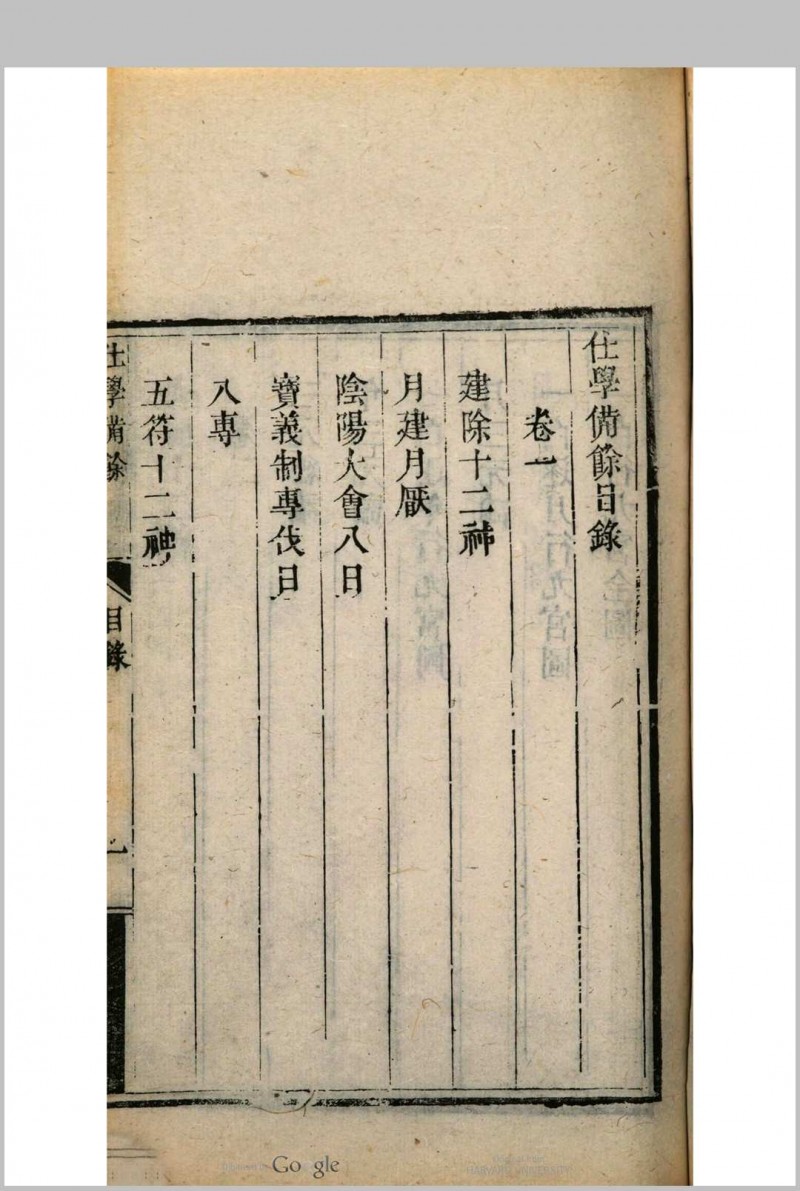 仕學備餘目錄
卷一
建除十二神
月建月厭
陰陽大會八日
寶義制專伐日
八專
五符十二神
仕學備餘
目錄
一
Google